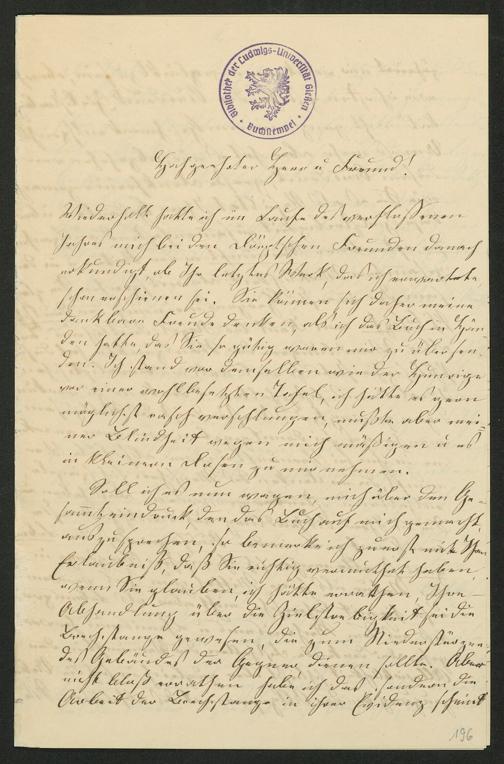 Bibliothek der Ludwigs-Universität Gießen
Buchstempel
Hochgeehrter Herr u Freund!
Wiederholt hatte ich im Laufe des verflossenen
Jahres mich bei den Freunden danach
erkundigt, ob Ihr letztes Werk, das ich erwartete
schon erschienen sei. Sie können sich daher meine
dankbare Freude denken, als ich das Buch in Hän
den hatte, das Sie so gütig waren mir zu übersen
den. Ich stand vor demselben wie der Hungrige
vor einer wohlbesetzten Tafel, ich hätte es gern
möglichst rasch verschlungen, mußte aber mei-
ner Blindheit wegen mich mäßigen u es
in kleineren Dosen zu mir nehmen.
Soll ich es nun wagen, mich über den Ge-
samteindruck, den das Buch auf mich gemacht,
auszusprechen, so bemerke ich zuerst mit Ihrer
Erlaubniß, daß Sie richtig vermuthet haben,
wenn Sie glauben, ich hätte errathen, Ihre
Abhandlung über die Zielstrebigkeit sei die
Brechstange gewesen, die zum Niederstürzen
des Gebäudes der Gegner dienen sollte. Aber
nicht bloß errathen habe ich das, sondern die
Arbeit der Brechstange in ihrer Evidenz scheint
196